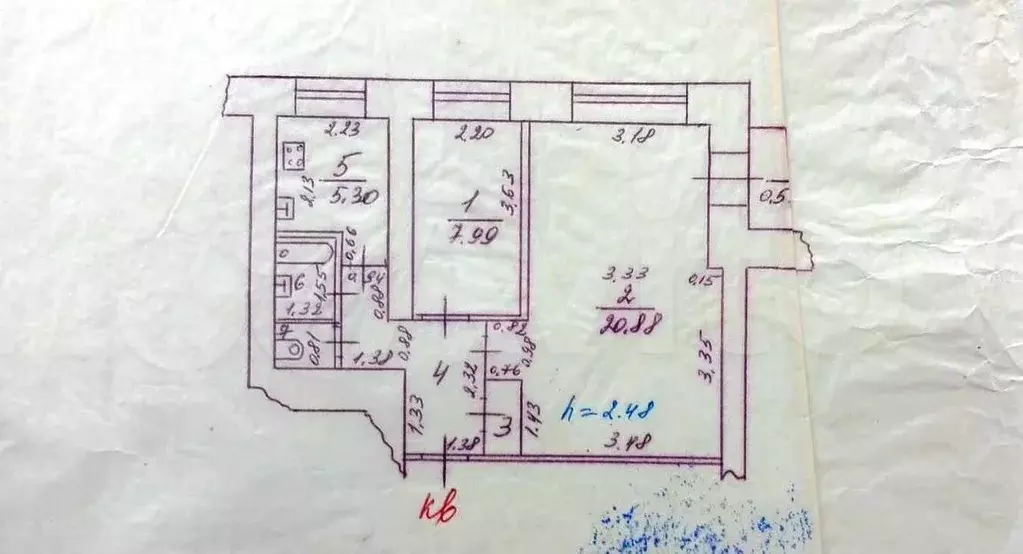 2.23
2.20
3.18
5
5.30
2,13
1
7.99
3,63
0,5
0,66
6
1,55
0,88
1,32
7
0,81
1.38
0,88
0.82
0,98
3.33
2
20.88
0,15
3,35
4
2,32
0,76
1,33
1.38
3
1,43
h=2.48
3.48
кв